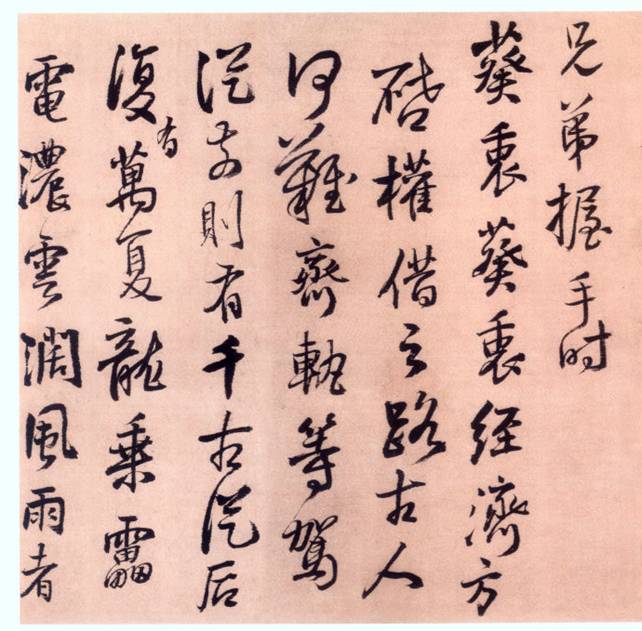 兄弟握手时
葵衷葵衷经濟方
啓權借之路古人
何難齊軌等駕
從前則有千古從后
復有萬夏龍乘靁
電濃雲潤風雨者